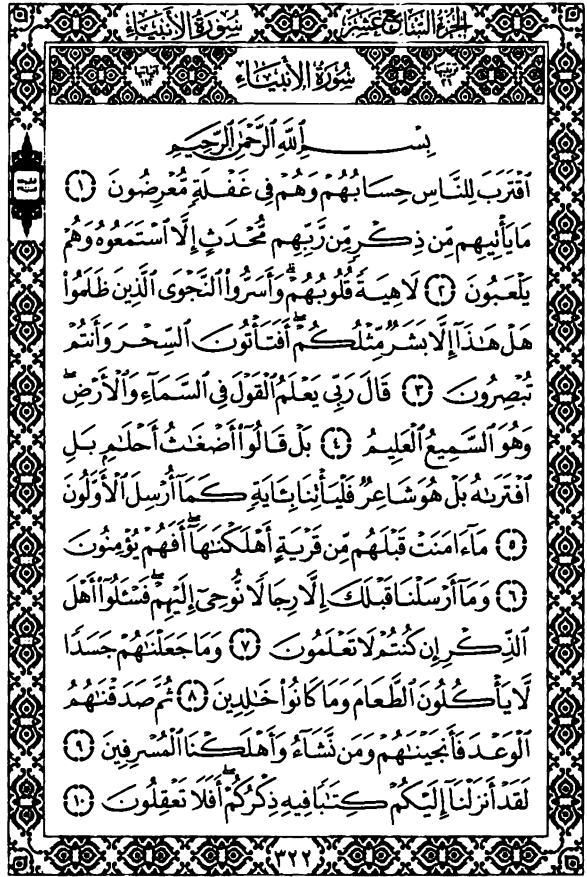 الجزء السابع عشر سورة الأنبياء
سُورَةُ الأَنبِيَاء
بِسْمِ اللَّهِ الرَّحْمَٰنِ الرَّحِيمِ
ٱقْتَرَبَ لِلنَّاسِ حِسَابُهُمْ وَهُمْ فِى غَفْلَةٍ مُّعْرِضُونَ ١
مَا يَأْتِيهِم مِّن ذِكْرٍ مِّن رَّبِّهِم مُّحْدَثٍ إِلَّا ٱسْتَمَعُوهُ وَهُمْ
يَلْعَبُونَ ٢ لَاهِيَةً قُلُوبُهُمْ ۗ وَأَسَرُّوا۟ ٱلنَّجْوَى ٱلَّذِينَ ظَلَمُوا۟
هَلْ هَـٰذَآ إِلَّا بَشَرٌ مِّثْلُكُمْ ۖ أَفَتَأْتُونَ ٱلسِّحْرَ وَأَنتُمْ
تُبْصِرُونَ ٣ قَالَ رَبِّى يَعْلَمُ ٱلْقَوْلَ فِى ٱلسَّمَآءِ وَٱلْأَرْضِ ۖ
وَهُوَ ٱلسَّمِيعُ ٱلْعَلِيمُ ٤ بَلْ قَالُوٓا۟ أَضْغَـٰثُ أَحْلَـٰمٍۭ بَلِ
ٱفْتَرَىٰهُ بَلْ هُوَ شَاعِرٌ فَلْيَأْتِنَا بِـَٔايَةٍ كَمَآ أُرْسِلَ ٱلْأَوَّلُونَ
٥ مَآ ءَامَنَتْ قَبْلَهُم مِّن قَرْيَةٍ أَهْلَكْنَـٰهَآ ۖ أَفَهُمْ يُؤْمِنُونَ
٦ وَمَآ أَرْسَلْنَا قَبْلَكَ إِلَّا رِجَالًا نُّوحِىٓ إِلَيْهِمْ ۖ فَسْـَٔلُوٓا۟ أَهْلَ
ٱلذِّكْرِ إِن كُنتُمْ لَا تَعْلَمُونَ ٧ وَمَا جَعَلْنَـٰهُمْ جَسَدًا
لَّا يَأْكُلُونَ ٱلطَّعَامَ وَمَا كَانُوا۟ خَـٰلِدِينَ ٨ ثُمَّ صَدَقْنَـٰهُمُ
ٱلْوَعْدَ فَأَنجَيْنَـٰهُمْ وَمَن نَّشَآءُ وَأَهْلَكْنَا ٱلْمُسْرِفِينَ ٩
لَقَدْ أَنزَلْنَآ إِلَيْكُمْ كِتَـٰبًا فِيهِ ذِكْرُكُمْ ۖ أَفَلَا تَعْقِلُونَ ١٠
٣٢٢